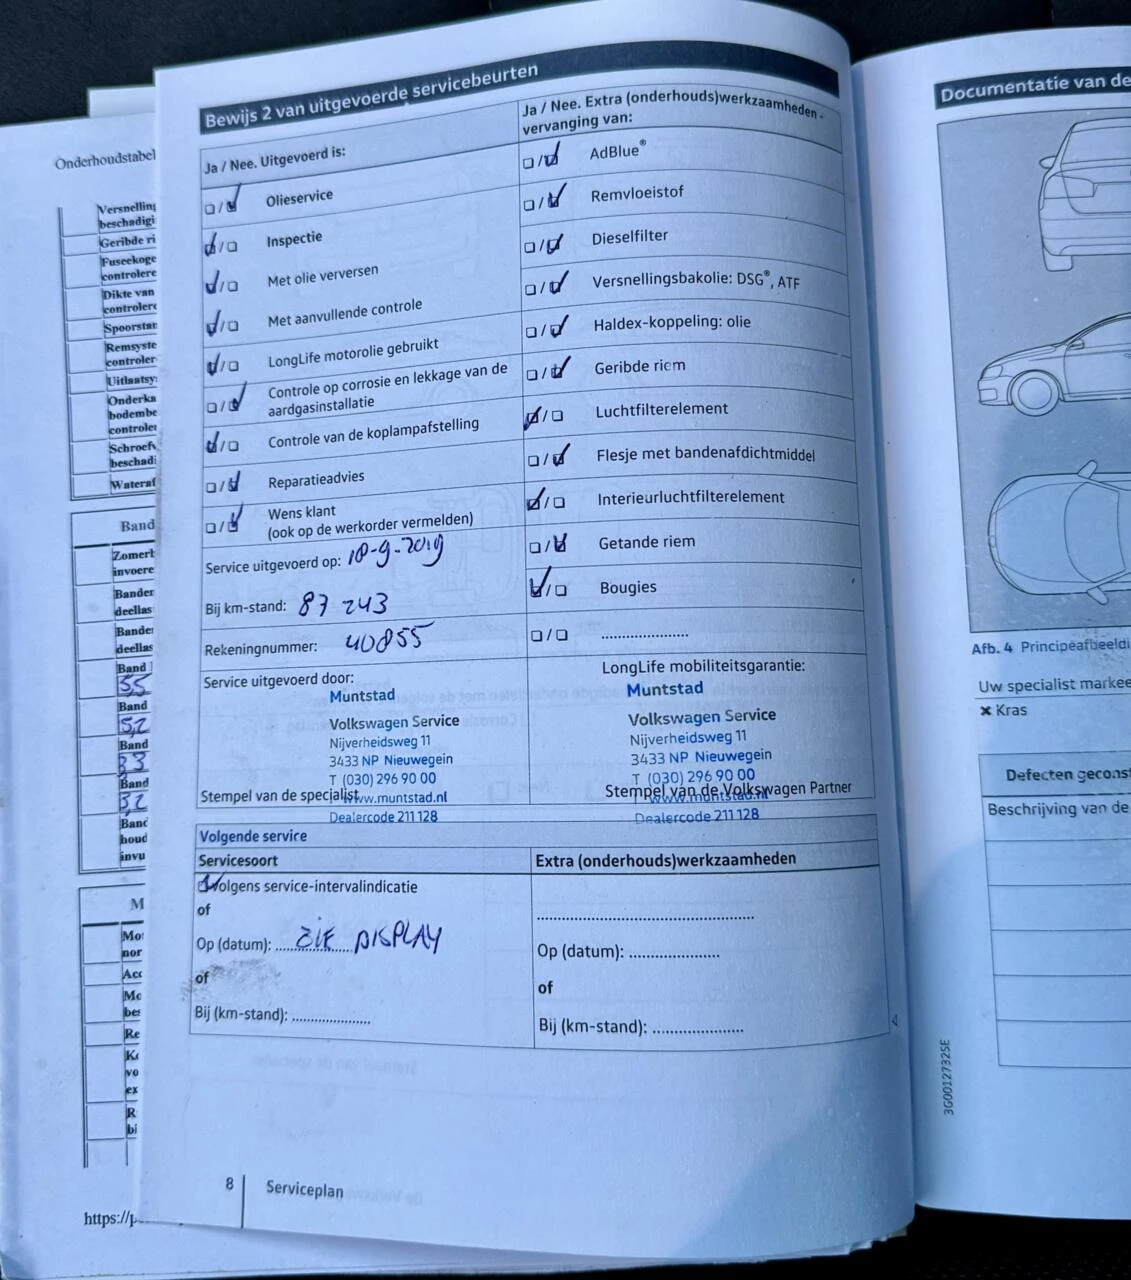 Onderhoudstabel
Versnelling
beschadigi
Geribde ri
Fuseekoge
controlere
Dikte van
controlere
Spoorstan
Remsyste
controler
Uitlaatsy
Onderka
bodembe
controler
Schroefv
beschadi
Wateraf
Band
Zomerb
invoere
Bander
deellas
Bander
deellas
Band
5,5
Band
5,2
Band
3,3
Band
3,2
Banc
houd
invu
M
Mo
nor
Acc
Mo
bes
Re
Ko
vo
ex
R
bi
https://p
Bewijs 2 van uitgevoerde servicebeurten
Ja / Nee. Uitgevoerd is:
Olieservice
Inspectie
Met olie verversen
Met aanvullende controle
LongLife motorolie gebruikt
Controle op corrosie en lekkage van de
aardgasinstallatie
Controle van de koplampafstelling
Reparatieadvies
Wens klant
(ook op de werkorder vermelden)
Service uitgevoerd op: 18-9-2019
Bij km-stand: 87 243
Rekeningnummer: 40855
Ja / Nee. Extra (onderhouds)werkzaamheden -
vervanging van:
AdBlue®
Remvloeistof
Dieselfilter
Versnellingsbakolie: DSG®, ATF
Haldex-koppeling: olie
Geribde riem
Luchtfilterelement
Flesje met bandenafdichtmiddel
Interieurluchtfilterelement
Getande riem
Bougies
....................
Service uitgevoerd door:
Muntstad
Volkswagen Service
Nijverheidsweg 11
3433 NP Nieuwegein
T (030) 296 90 00
www.muntstad.nl
Dealercode 211 128
Stempel van de specialist
LongLife mobiliteitsgarantie:
Muntstad
Volkswagen Service
Nijverheidsweg 11
3433 NP Nieuwegein
T (030) 296 90 00
www.muntstad.nl
Dealercode 211 128
Stempel van de Volkswagen Partner
Volgende service
Servicesoort
Volgens service-intervalindicatie
of
Op (datum): ZIE DISPLAY
of
Bij (km-stand): ....................
Extra (onderhouds)werkzaamheden
....................
Op (datum): ....................
of
Bij (km-stand): ....................
8
Serviceplan
Documentatie van de
Afb. 4 Principeafbeeldi
Uw specialist markee
× Kras
Defecten geconst
Beschrijving van de
3G00127325E